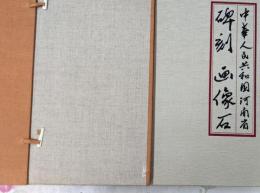 中华人民共和国河南省
碑刻画像石